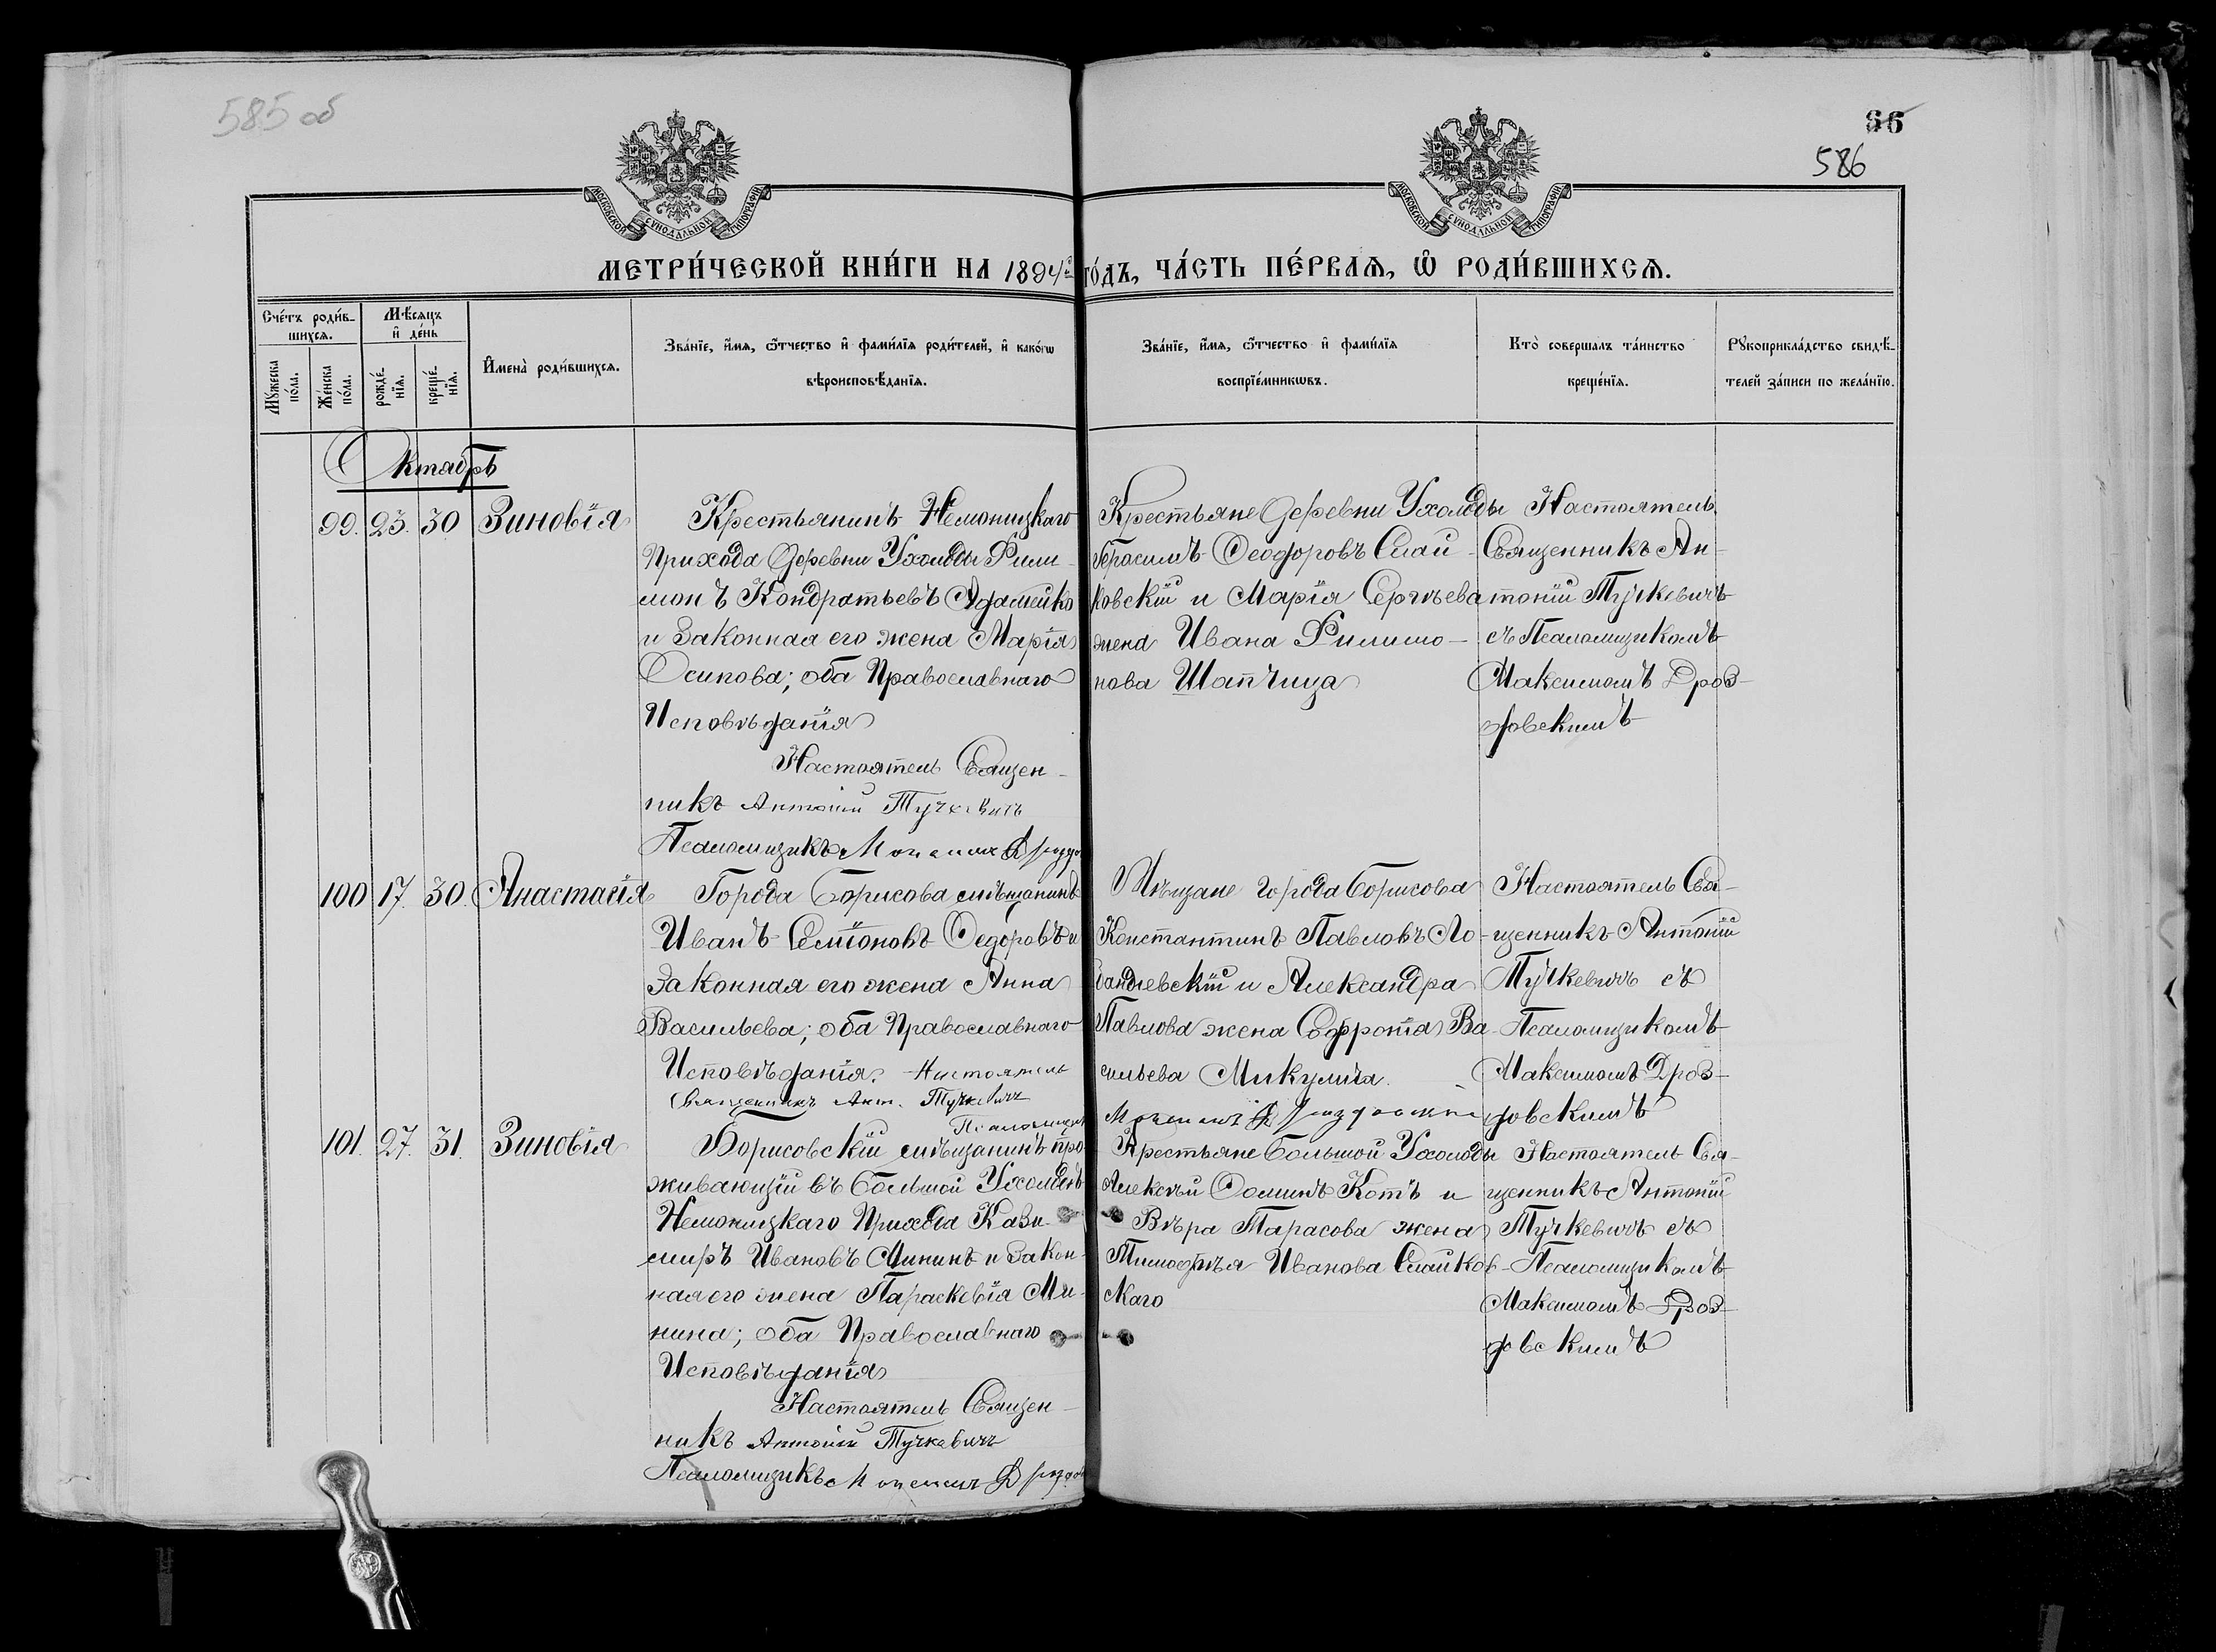 585 об
66
586
МОСКОВСКОЙ СѴНОДАЛЬНОЙ ТИПОГРАФІИ
МОСКОВСКОЙ СѴНОДАЛЬНОЙ ТИПОГРАФІИ
МЕТРИ́ЧЕСКОЙ КНИ́ГИ НА 1894й ГО́ДЪ, ЧА́СТЬ ПЕ́РВАЯ, Ѡ РОДИ́ВШИХСЯ.
Сче́тъ роди́в-
шихся.
Мѣ́сяцъ
и де́нь
Му́жеска
по́ла.
Же́нска
по́ла.
рожде́-
нїя.
креще́-
нїя.
Имена̀ роди́вшихся.
Зва́нїе, и́мя, ѻ́тчество и фами́лїя роди́телей, и како́гѡ
вѣроисповѣ́данїя.
Зва́нїе, и́мя, ѻ́тчество и фами́лїя
воспрїе́мникѡвъ.
Кто̀ соверша́лъ та́инство
креще́нїя.
Рꙋкоприкла́дство свидѣ́-
телей за́писи по жела́нїю.
Октябрь
99. 23. 30 Зиновія
Крестьянинъ Немоницкаго
Прихода Деревни Ухолоды Фили-
монъ Кондратьевъ Адамейко
и Законная его жена Марія
Осипова; оба Православнаго
Исповѣданія
Настоятель Священ-
никъ Антоній Тучкевичъ
Псаломщикъ Максимъ
Крестьяне Деревни Ухолоды
Герасимъ Ѳеодоровъ Слай-
ковскій и Марія Сергѣева
жена Ивана Филимо-
нова Шапчица
Настоятель
Священникъ Ан-
тоній Тучкевичъ
съ Псаломщикомъ
Максимомъ Дроз-
довскимъ
100 17. 30. Анастасія
Города Борисова мѣщанинъ
Иванъ Семіоновъ Ѳедоровъ и
Законная его жена Анна
Васильева; оба Православнаго
Исповѣданія. Настоятель
Священникъ Ант. Тучкевичъ
Псаломщикъ
Мѣщане города Борисова
Константинъ Павловъ Ло-
бандіевскій и Александра
Павлова жена Евфротія Ва-
сильева Микулича.
Максимъ Дроздовскій
Настоятель Свя-
щенникъ Антоній
Тучкевичъ съ
Псаломщикомъ
Максимомъ Дроз-
довскимъ
101. 27. 31. Зиновія
Борисовскій мѣщанинъ про-
живающій въ Большой Ухолодѣ
Немоницкаго Прихода Кази-
миръ Ивановъ Мининъ и Закон-
ная его жена Параскевія Ми-
нина; оба Православнаго
Исповѣданія
Настоятель Священ-
никъ Антоній Тучкевичъ
Псаломщикъ Максимъ
Крестьяне Большой Ухолоды
Алексѣй Ѳоминъ Котъ и
Вѣра Тарасова жена
Тимоѳѣя Иванова Слайков-
скаго
Настоятель Свя-
щенникъ Антоній
Тучкевичъ съ
Псаломщикомъ
Максимомъ Дроз-
довскимъ